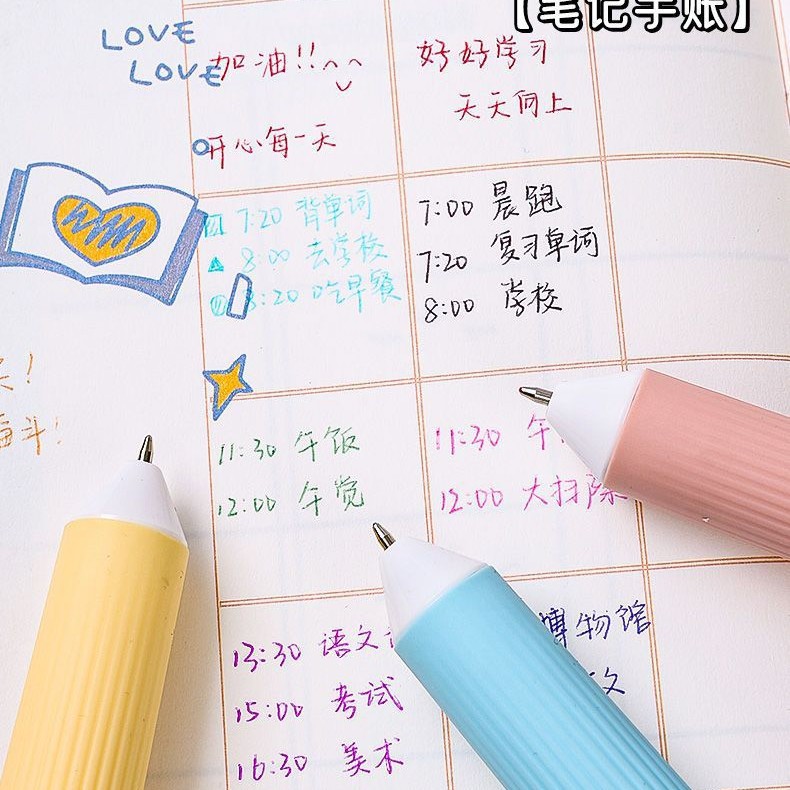 【笔记手账】
LOVE
LOVE
加油!!
开心每一天
好好学习
天天向上
7:20 背单词
8:00 去学校
8:20 吃早餐
7:00 晨跑
7:20 复习单词
8:00 学校
奋斗!
11:30 午饭
12:00 午觉
11:30 午
12:00 大扫除
13:30 语文
15:00 考试
16:30 美术
博物馆
文